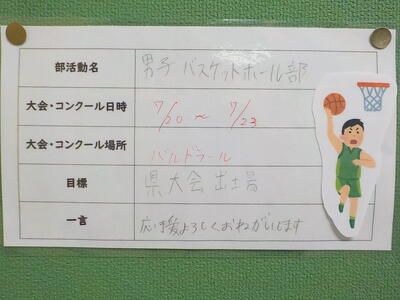 部活動名 男子バスケットホール部
大会・コンクール日時 7/20 ~ 7/23
大会・コンクール場所 バルドラール
目標 県大会出場
一言 応援よろしくおねがいします